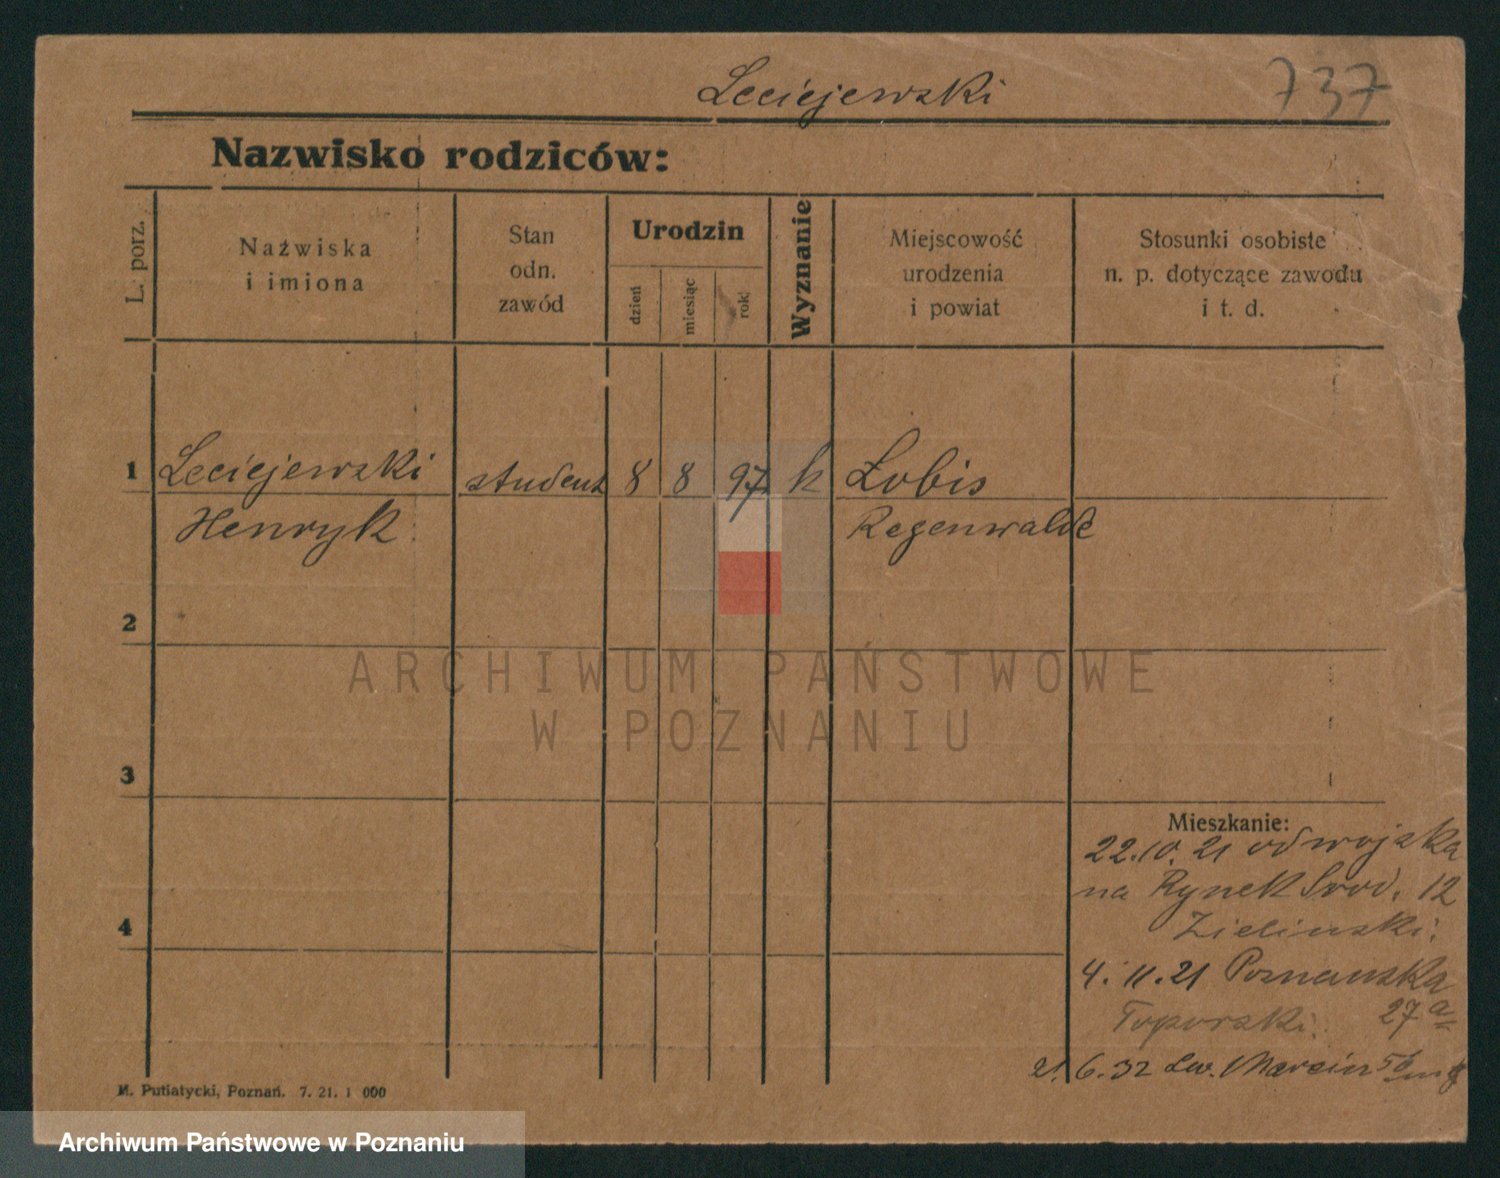 Leciejewski
737
Nazwisko rodziców:
L. porz.
Nazwiska
i imiona
Stan
odn.
zawód
Urodzin
dzień
miesiąc
rok
Wyznanie
Miejscowość
urodzenia
i powiat
Stosunki osobiste
n. p. dotyczące zawodu
i t. d.
1 Leciejewski student 8 8 97 k Łobis
Henryk Regenwalde
2
3
4
Mieszkanie:
22.10.21 od wojska
na Rynek Srod. 12
Zielinski.
4.11.21 Poznanska
Toporski. 27 a
21.6.32 Św. Marcin
M. Putiatycki, Poznań. 7. 21. 1 000
ARCHIWUM PAŃSTWOWE
W POZNANIU
Archiwum Państwowe w Poznaniu